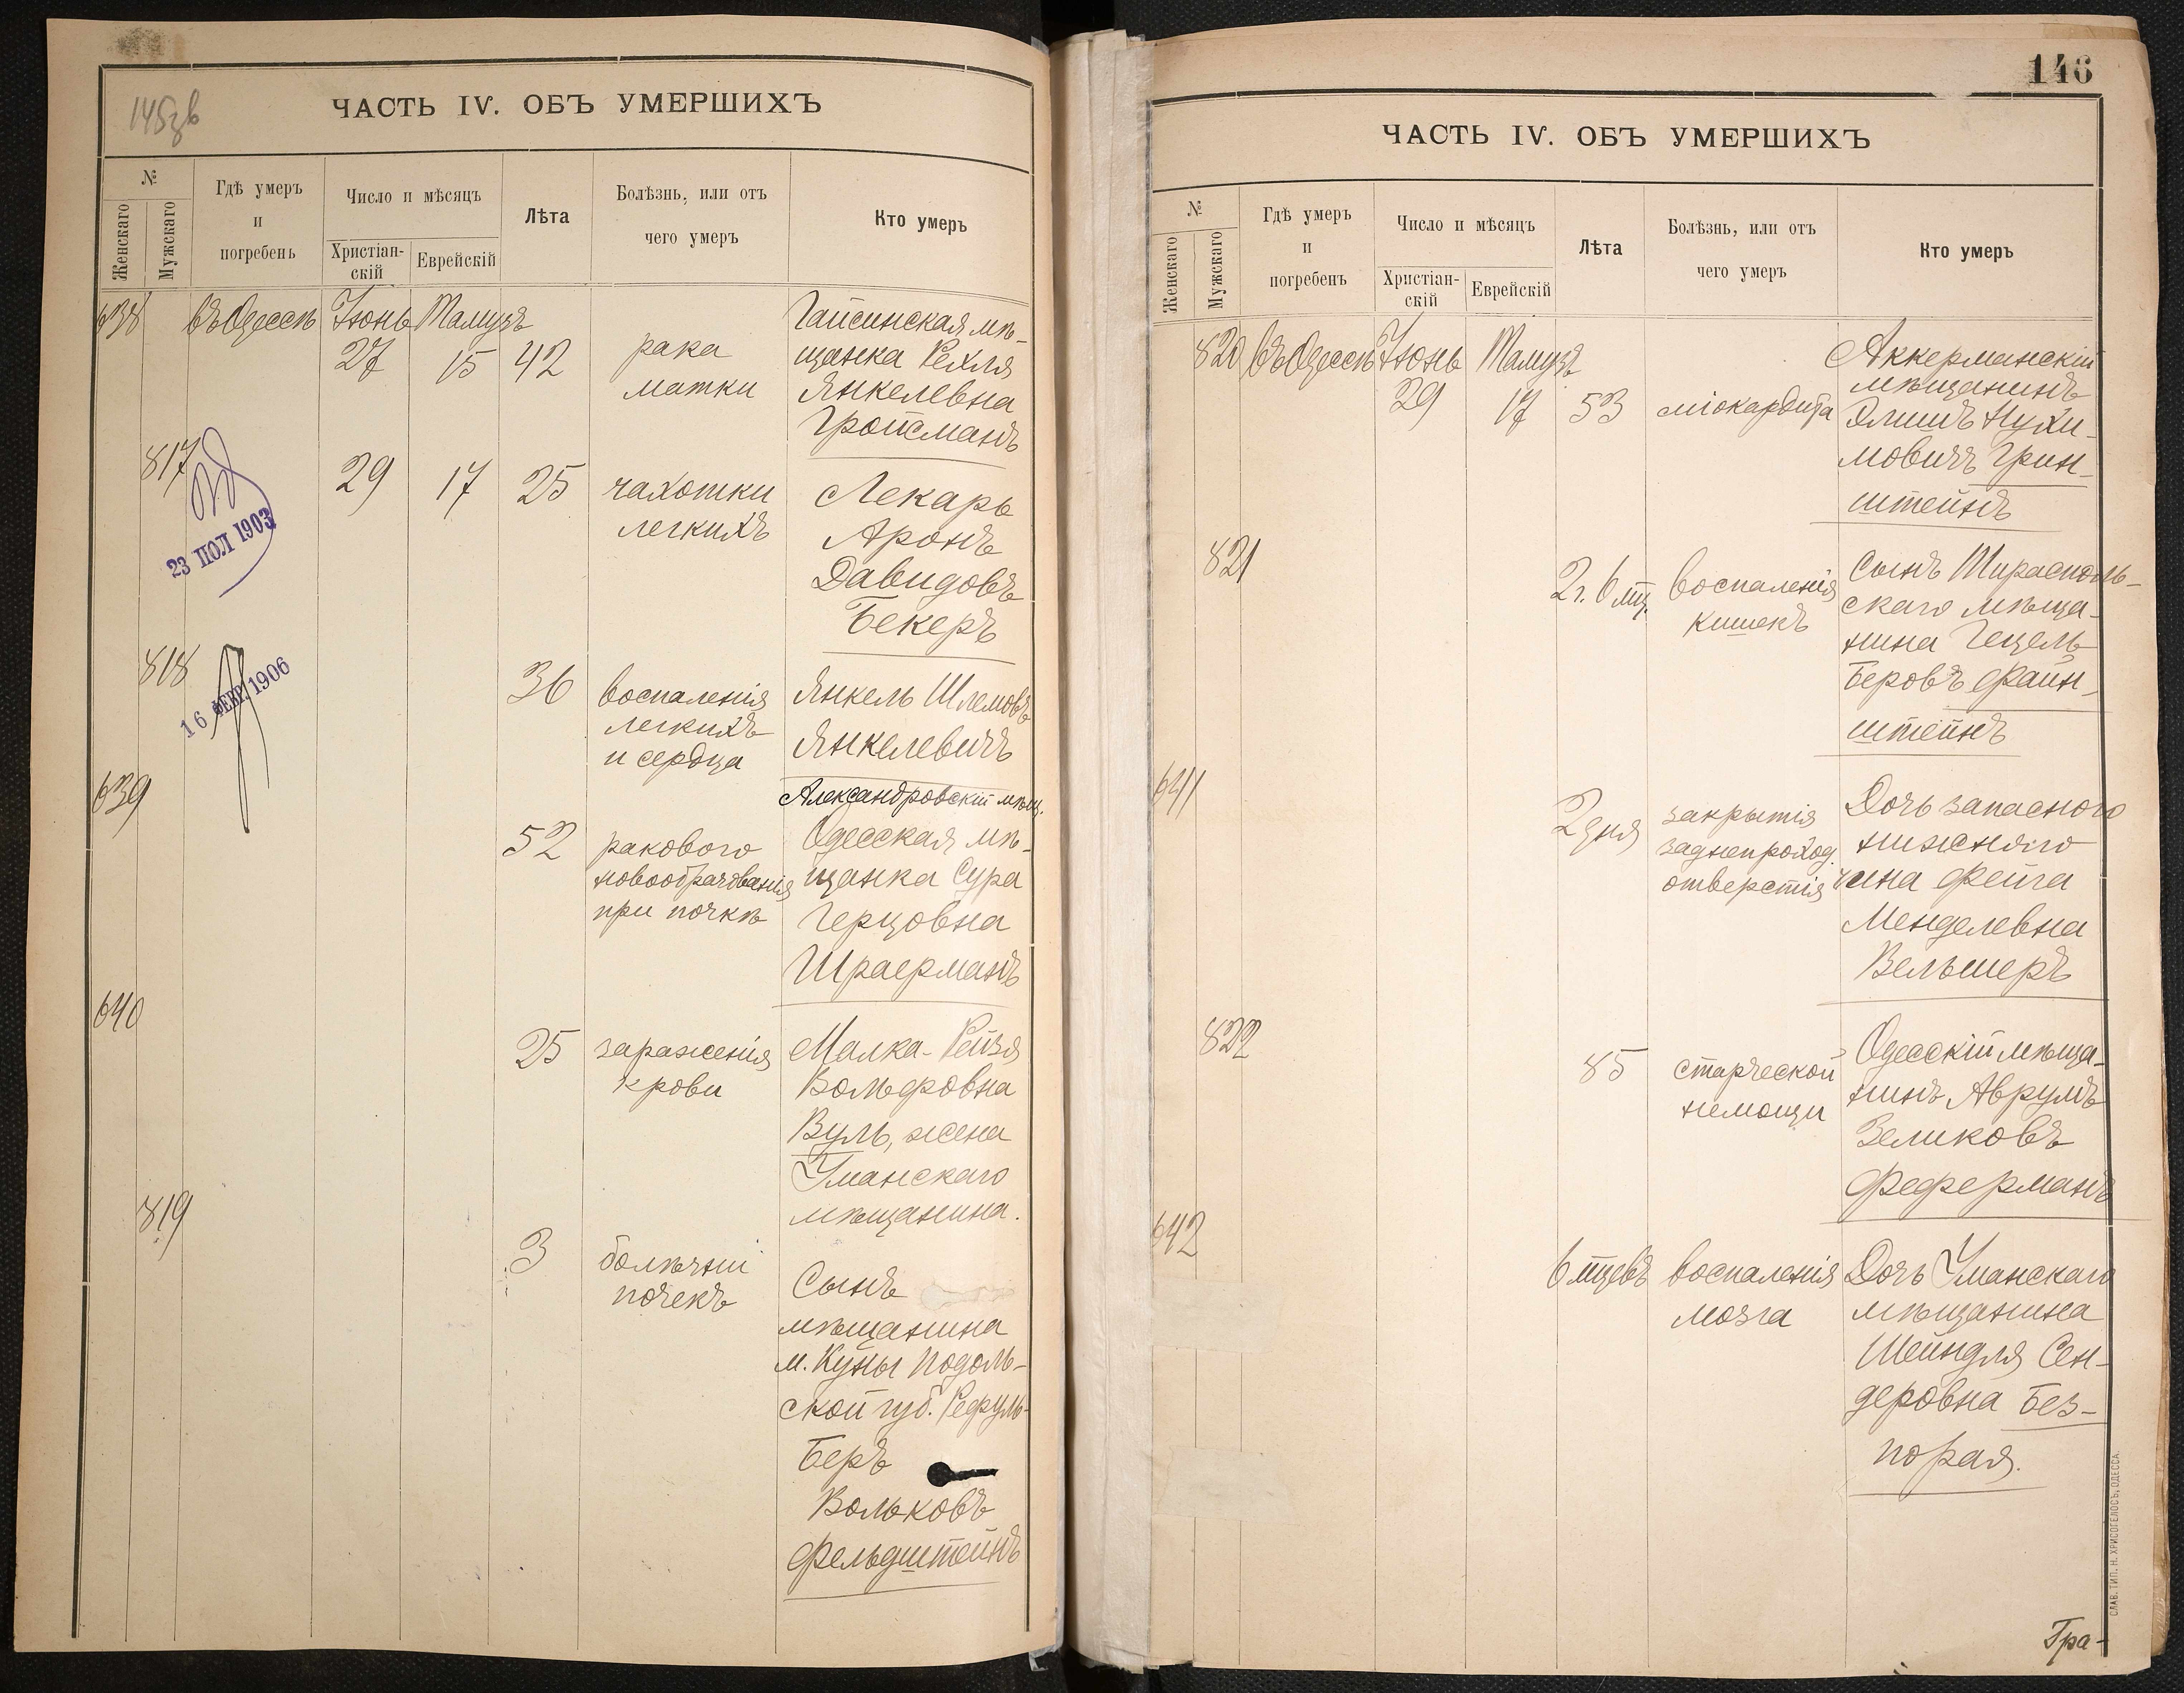 145зв
ЧАСТЬ IV. ОБЪ УМЕРШИХЪ
№
Женскаго
Мужскаго
Гдѣ умеръ
и
погребенъ
Число и мѣсяцъ
Христіан-
скій
Еврейскій
Лѣта
Болѣзнь, или отъ
чего умеръ
Кто умеръ
638 въ Одессѣ Іюнь Тамузъ
27 15 42
рака
матки
Гайсинская мѣ-
щанка Рехля
Янкелевна
Гройсманъ
817
23 ІЮЛ 1903
29 17 25
чахотки
легкихъ
Лекарь
Аронъ
Давидовъ
Бекеръ
818
16 ФЕВР 1906
36
воспаленія
легкихъ
и сердца
Янкель Шлемовъ
Янкелевичъ
Александровскій мѣщ.
639
52
раковаго
новообразованія
при почкѣ
Одесская мѣ-
щанка Сура
Герцовна
Шраерманъ
640
25
зараженія
крови
Малка-Рейзя
Вольфовна
Вуль, жена
Уманскаго
мѣщанина.
819
3
болѣзни
почекъ
Сынъ
мѣщанина
м. Куны Подоль-
ской губ. Рефуль-
Беръ
Вольковъ
Фельдштейнъ
146
ЧАСТЬ IV. ОБЪ УМЕРШИХЪ
№
Женскаго
Мужскаго
Гдѣ умеръ
и
погребенъ
Число и мѣсяцъ
Христіан-
скій
Еврейскій
Лѣта
Болѣзнь, или отъ
чего умеръ
Кто умеръ
820 въ Одессѣ Іюнь Тамузъ
29 17 53 міокардита
Аккерманскій
мѣщанинъ
Элишъ Нухи-
мовичъ Грин-
штейнъ
821
2 г. 6 мц.
воспаленія
кишекъ
Сынъ Тирасполь-
скаго мѣща-
нина Гецель
Беровъ Файн-
штейнъ
641
2 дня
закрытія
заднепроход.
отверстія
Дочь запаснаго
нижняго
чина Фейга
Менделевна
Вельшеръ
822
85
старческой
немощи
Одесскій мѣща-
нинъ Аврумъ
Зеликовъ
Феферманъ
642
6 мцевъ
воспаленія
мозга
Дочь Уманскаго
мѣщанина
Шейндля Сен-
деровна Без-
порая.
СЛАВ. ТИП. Н. ХРИСОГЕЛОСЪ, ОДЕССА.
Гра-